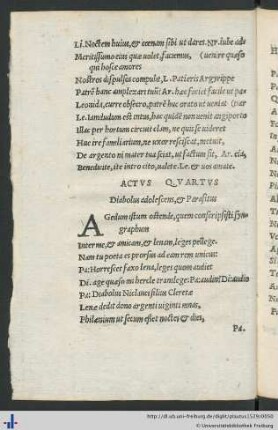 Li. Noctem huius, et coenam sibi ut daret. Ar. iube ad
Meritissimo eius quae uolet, faciemus, (uenire quaeso
qui hosce amores
Nostros dispulsos compulit. L. Patieris Argyrippe
Patrē hanc amplexari tuū: Ar. haec fariet facile ut pa
Leonida, curre obsecro, patrē huc orato ut ueniat (tiar
Le. Iamdudum est intus, huc quidē non uenit angiporto
Illac per hortum circuit clam, ne quis se uideret
Huc ire familiarium, ne uxor resciscat, metuit,
De argento si mater tua sciat, ut factum sit, Ar. eia,
Benedicite, ite intro cito, ualete. Le. et uos amate.
ACTVS QVARTVS
Diabolus adolescens, et Parasitus
AGedum istum ostende, quem conscripsisti syn-
graphum
Inter me, et amicam, et lenam, leges pellege.
Nam tu poeta es prorsus ad eam rem unicus:
Pa: Horrescet faxo lena, leges quum audiet
Di. age quaeso mi hercle translege. Pa: audin? Di: audio
Pa: Diabolus Niclauci filius Cleretae
Lenae dedit dono argenti uiginti minas,
Philaenium ut secum esset noctes et dies,
Pa.
http://dl.ub.uni-freiburg.de/diglit/plautus1519/0050
© Universitätsbibliothek Freiburg